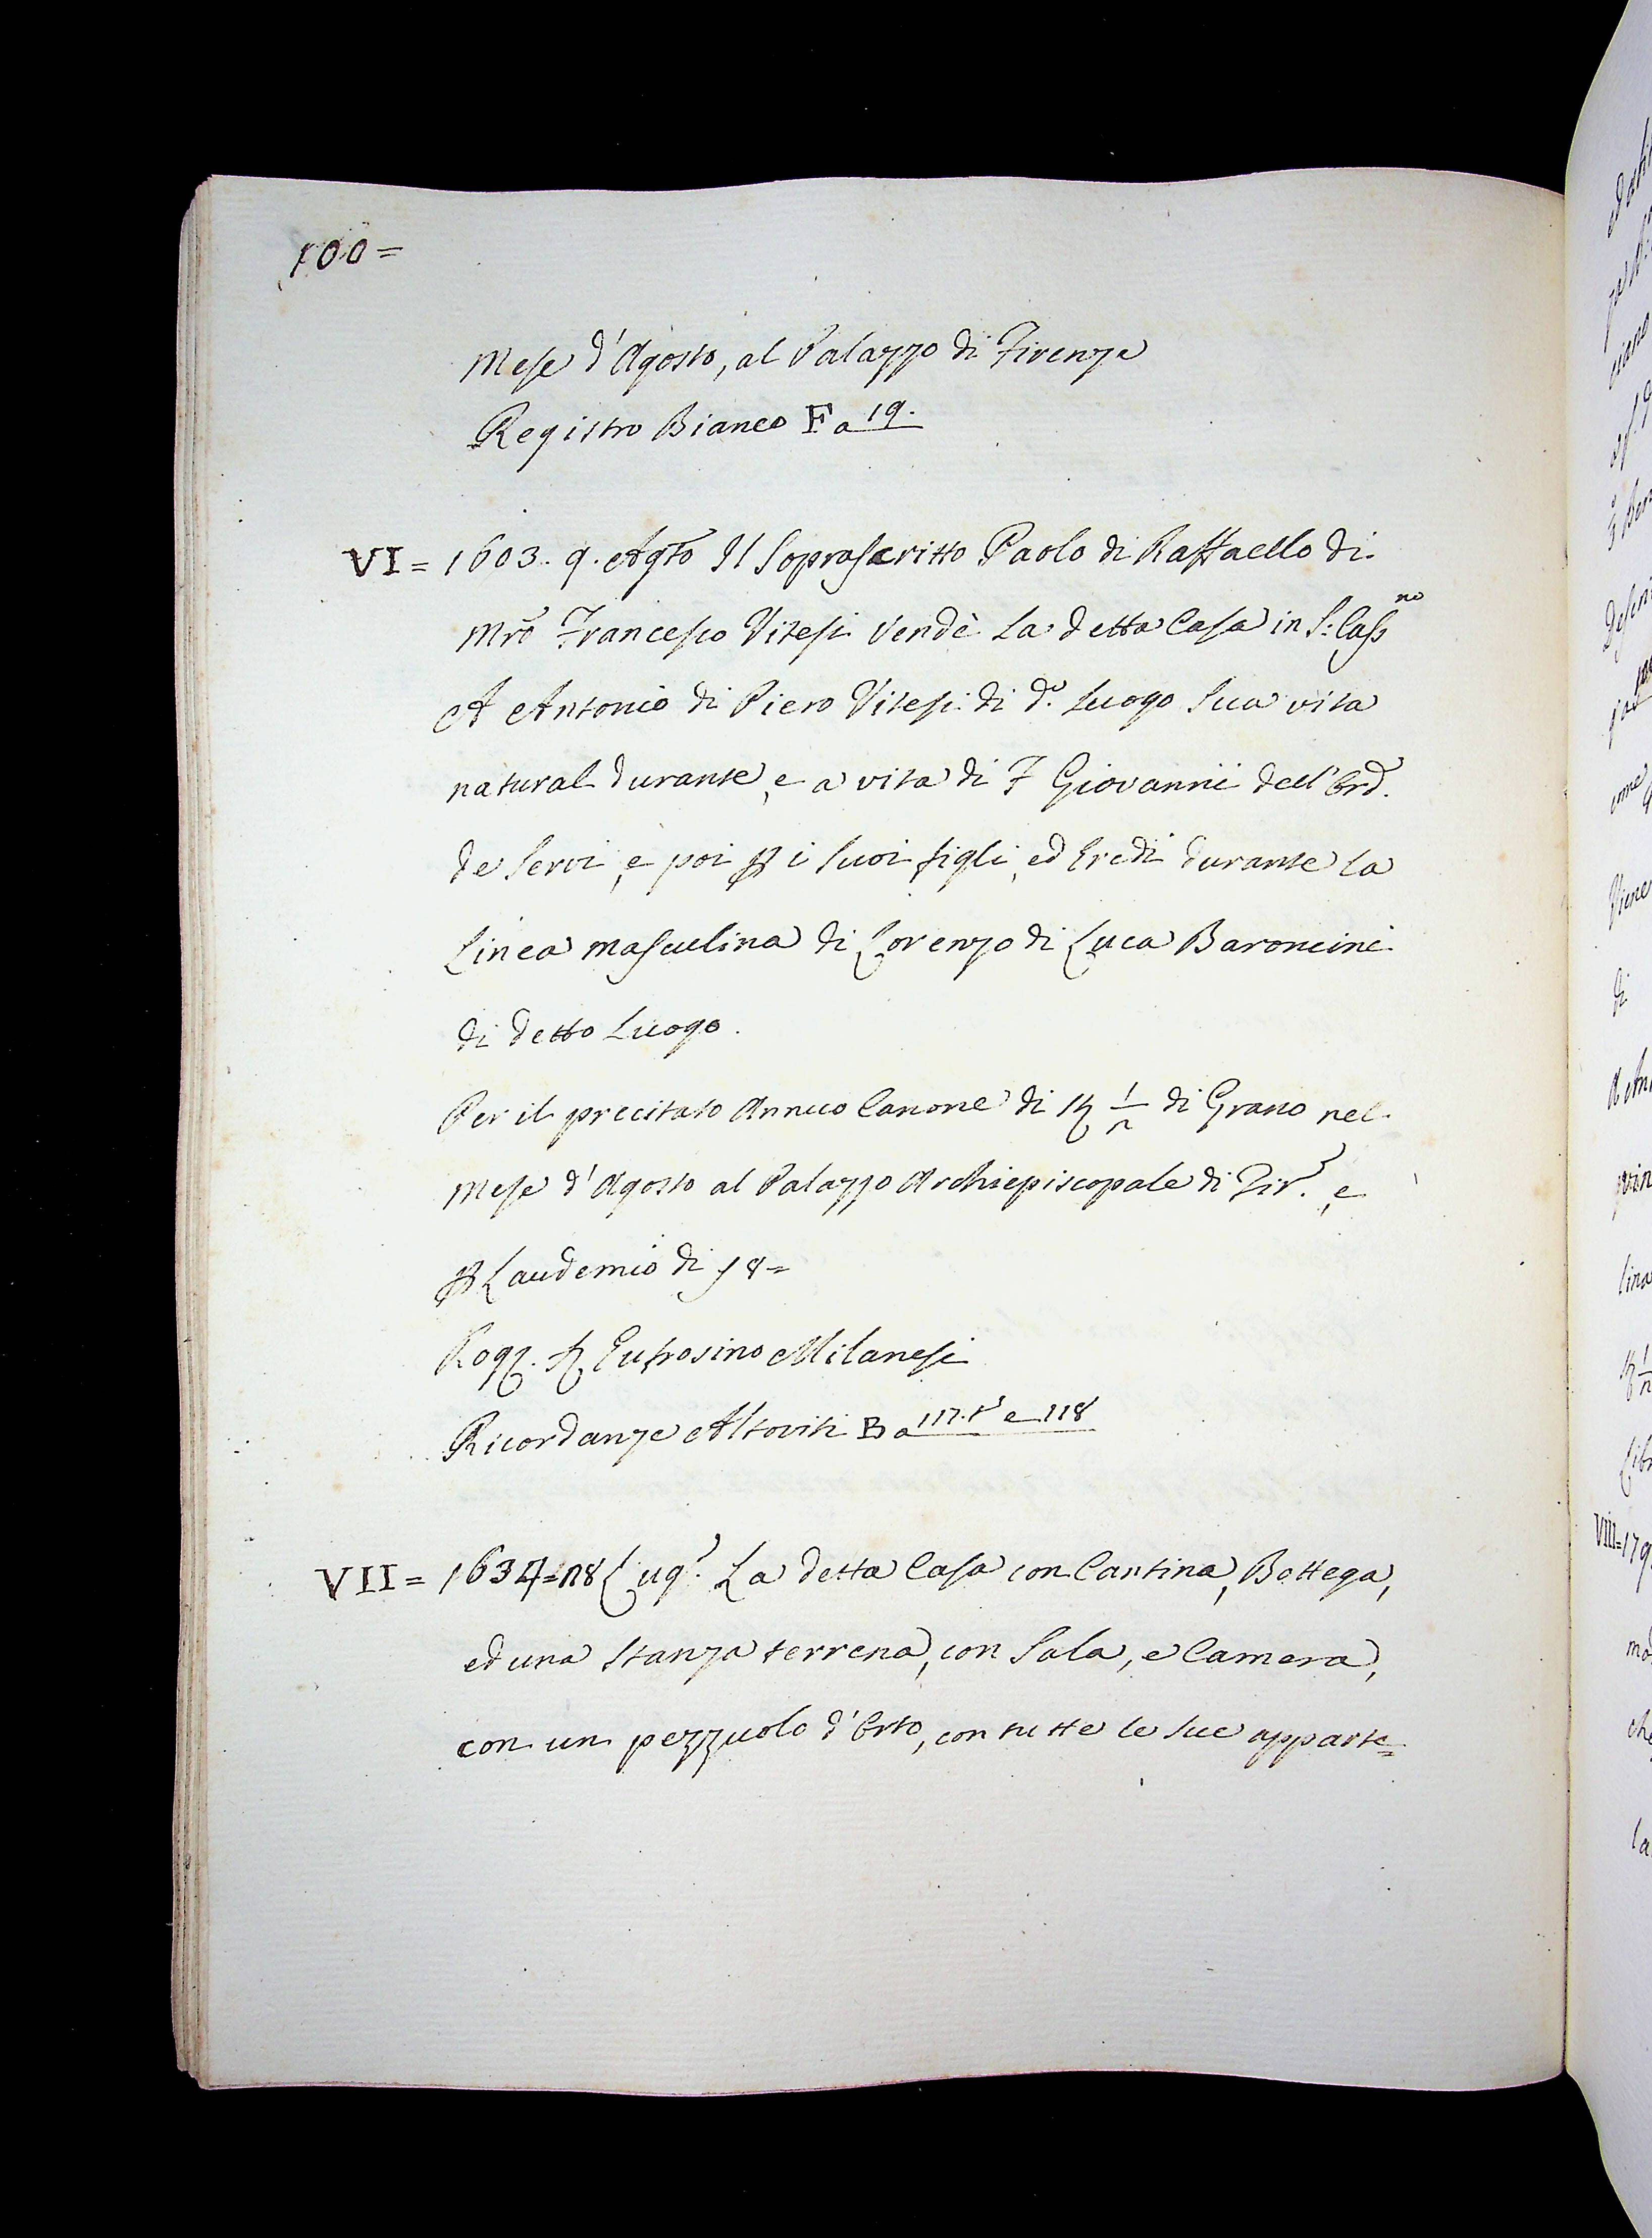 100=
Mese d'Agosto, al Palazzo di Firenze
Registro Bianco F a 19.
VI = 1603. 9. Agto Il Soprascritto Paolo di Raffaello di
Mro Francesco Vitesi vendè la detta Casa in S: Cassno
A Antonio di Piero Vitesi di do. Luogo Sua vita
natural durante, e a vita di F Giovanni dell'Ord.
de Servi, e poi p i suoi figli, ed Eredi durante la
Linea masculina di Lorenzo di Luca Baroncini
di detto Luogo.
Per il precitato Annuo Canone di 1/2 di Grano nel
Mese d'Agosto al Palazzo Archiepiscopale di Fir., e
p Laudemio di 18=
Rog. Eufrosino Milanesi
Ricordanze Altoviti B a 117.t e 118
VII = 1634=28 Lug. La detta Casa con Cantina, Bottega,
ed una Stanza terrena, con Sala, e Camera,
con un pezzuolo d'Orto, con tutte le sue apparte=
VIII=